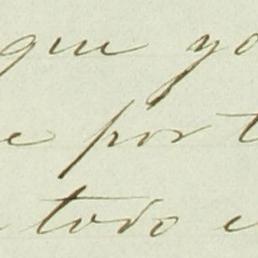 que yo
e por t
todo e